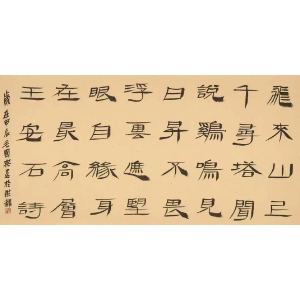 飛來山上
千尋塔聞
說鷄鳴見
日昇不畏
浮雲遮望
眼自緣身
在最高層
王安石詩
歲在甲辰